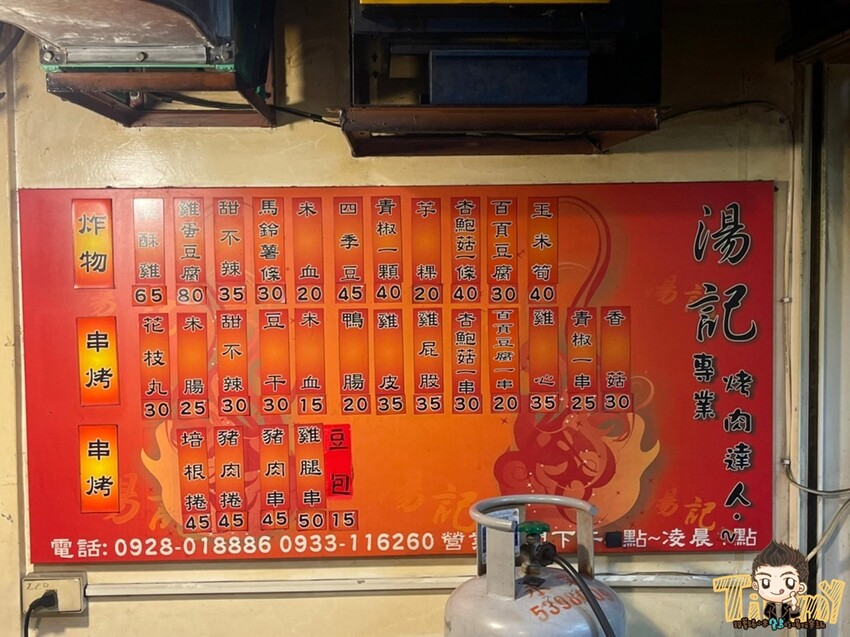 湯記
專業
烤肉達人
炸物
酥雞 65
雞蛋豆腐 80
甜不辣 35
馬鈴薯條 30
米血 20
四季豆 45
青椒一顆 40
芋粿 20
杏鮑菇一條 40
百頁豆腐 30
玉米筍 40
串烤
花枝丸 30
米腸 25
甜不辣 30
豆干 30
米血 15
鴨腸 20
雞皮 35
雞屁股 35
杏鮑菇一串 30
百頁豆腐一串 20
雞心 35
青椒一串 25
香菇 30
串烤
培根捲 45
豬肉捲 45
豬肉串 45
雞腿串 50
豆包 15
電話: 0928-018886 0933-116260 營 下午 點~凌晨 點
TiMMY